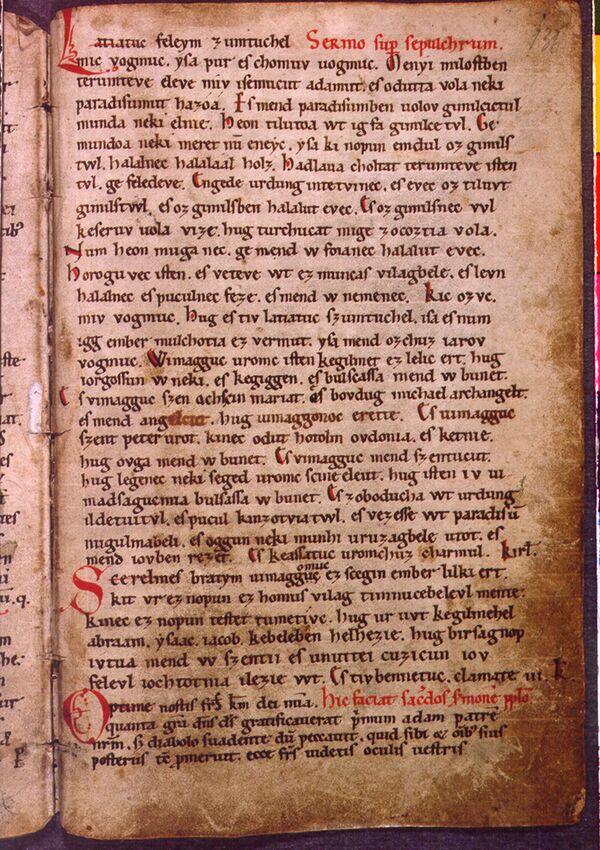 Latiatuc feleym zumtuchel Sermo sup sepulchrum.
mic vogmuc. ysa pur es chomuv uogmuc. Menyi milostben
terumteve eleve miv isemucut adamut. es odutta vola neki
paradisumut hazoa. Es mend paradisumben uolov gimilcictul
munda neki elnie. heon tilutoa wt ig fa gimilce tvl. Ge
mundoa neki meret nũ eneyc. ysa ki nopun emdul oz gimils
twl. halalnec halalaal holz. hadlaua choltat terumteve isten
tvl. ge feledeve. Engede urdung intetvinec. es evec oz tiluvt
gimilstwl. es oz gimilsben halalut evec. Es oz gimilsnec vvl
keseruv uola vize. hug turchucat mige zocoztia vola.
Num heon muga nec. ge mend w foianec halalut evec.
horogu vec isten. es veteve wt ez muncas vilagbele. es levn
halalnec es puculnec feze. es mend w nemenec. kic ozvc.
miv vogmuc. hug es tiv latiatuc szumtuchel. isa es num
igg ember mulchotia ez vermut. ysa mend ozchuz iarov
vogmuc. Wimagguc uromc isten kegilmet ez lelic ert. hug
iorgossun w neki. es kegiggen. es bulsassa mend w bunet.
Es vimagguc szen achscin mariat. es bovdug michael archangelt.
es mend angelcut. hug uimaggonoc erette. Es uimagguc
szent peter urot. kinec odut hotolm ovdonia. es ketnie.
hug ovga mend w bunet. Es vimagguc mend szentucut.
hug legenec neki seged uromc scine eleut. hug isten iv ui
madsagucmia bulsassa w bunet. Es zoboducha wt urdung
ildetuitvl. es pucul kinzotviatwl. es vezesse wt paradisũ
nugulmabeli. es oggun neki munhi uruzagbele utot. es
mend iovben rezet. Es keassatuc uromchuz charmul. kirl.
Scerelmes bratym uimagguc omuc ez scegin ember lilki ert.
kit vr ez nopun ez homus vilag timnucebelevl mente.
kinec ez nopun testet tumetivc. hug ur uvt kegilmehel
abraam. ysaac. iacob. kebeleben helhezie. hug birsagnop
ivtua mend w szentii es unuttei cuzicun iov
felevl iochtotnia ilezie wt. Es tiv bennetuc. clamate iii. k.
Optime nostis frs km dei mia. hic faciat sacdos smone pplo
quanta gra dns ds gratificauerat primum adam patre
nrm. s; diabolo suadente dũ peccauit. quid sibi &amp; oib; suis
posteris pmeruit. ecce frs uidetis oculis uestris